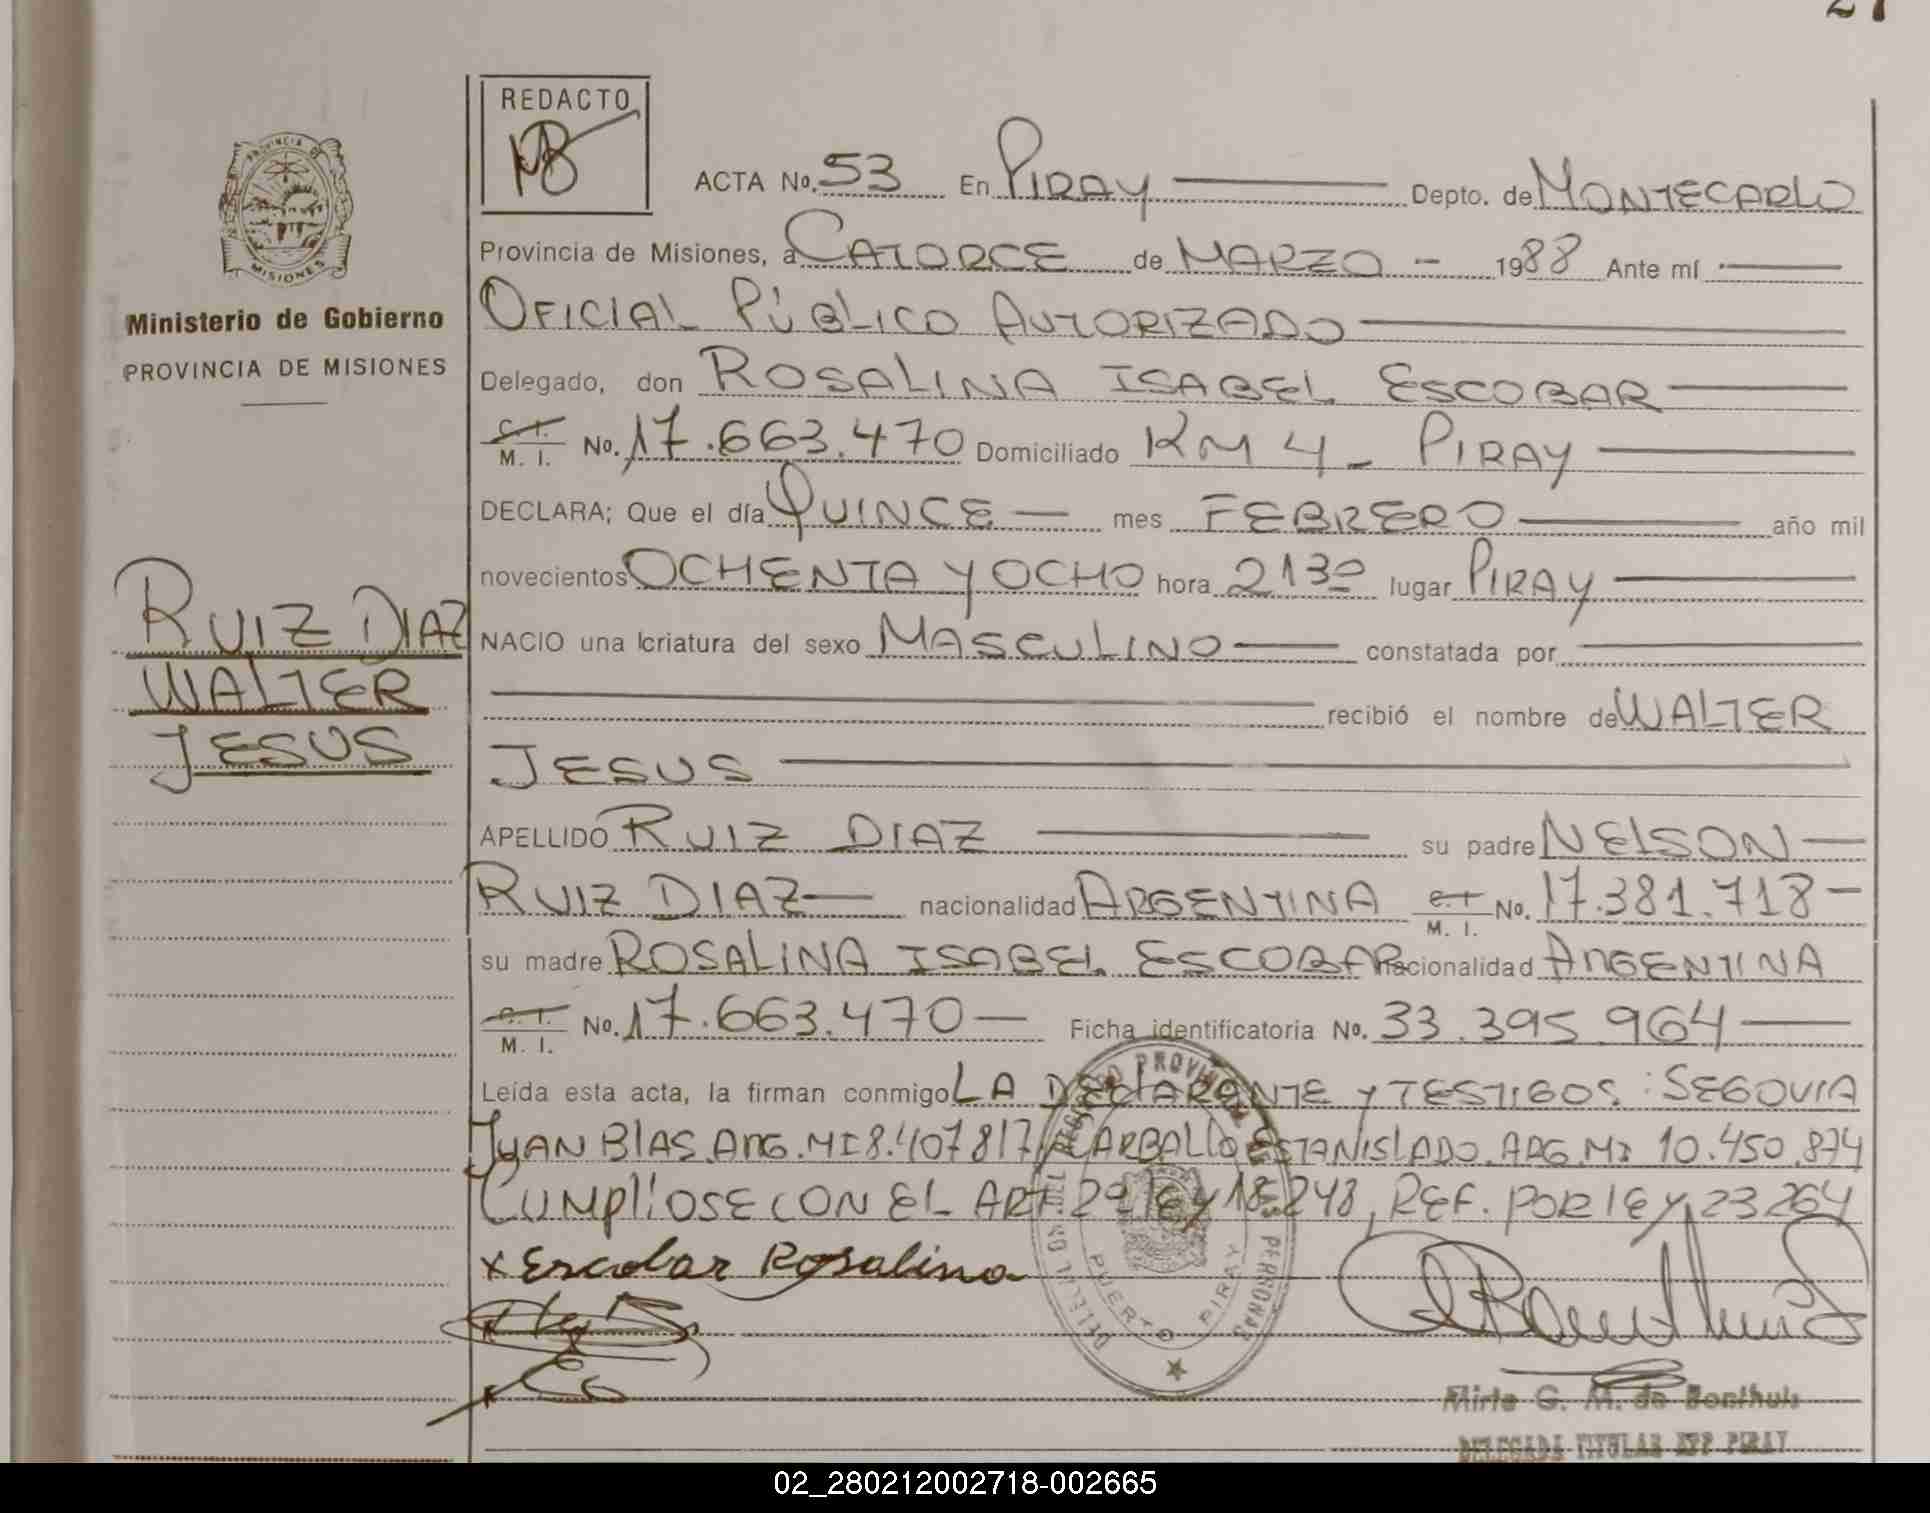 27
REDACTO
ACTA No. 53 En PIRAY Depto. de MONTECARLO
Provincia de Misiones, a CATORCE de MARZO - 1988 Ante mí
OFICIAL PÚBLICO AUTORIZADO
Delegado, don ROSALINA ISABEL ESCOBAR
C. I.
M. I. No. 17.663.470 Domiciliado KM 4 - PIRAY
DECLARA; Que el día QUINCE mes FEBRERO año mil
novecientos OCHENTA Y OCHO hora 2130 lugar PIRAY
NACIO una criatura del sexo MASCULINO constatada por
recibió el nombre de WALTER
JESUS
APELLIDO RUIZ DIAZ su padre NELSON
RUIZ DIAZ nacionalidad ARGENTINA C. I.
M. I. No. 17.381.718-
su madre ROSALINA ISABEL ESCOBAR nacionalidad ARGENTINA
C. I.
M. I. No. 17.663.470 Ficha identificatoria No. 33.395.964
Leída esta acta, la firman conmigo LA DEClARANTE Y TESTIGOS: SEGOVIA
JUAN BlAS. ARG. MI 8.407817 CARBALLO ESTANISLADO. ARG. MI 10.450.874
CUMPlIOSE CON EL ART. 29 lEY 18.248, REF. POR lEY 23264
x Escobar Rosalina
DELEG. DEL REGISTRO PROVINCIAL DE LAS PERSONAS
PUERTO PIRAY
Mirta G. M. de Bonthuis
DELEGADA TITULAR RPP PIRAY
PROVINCIA DE
MISIONES
Ministerio de Gobierno
PROVINCIA DE MISIONES
RUIZ DIAZ
WALTER
JESUS
02_280212002718-002665